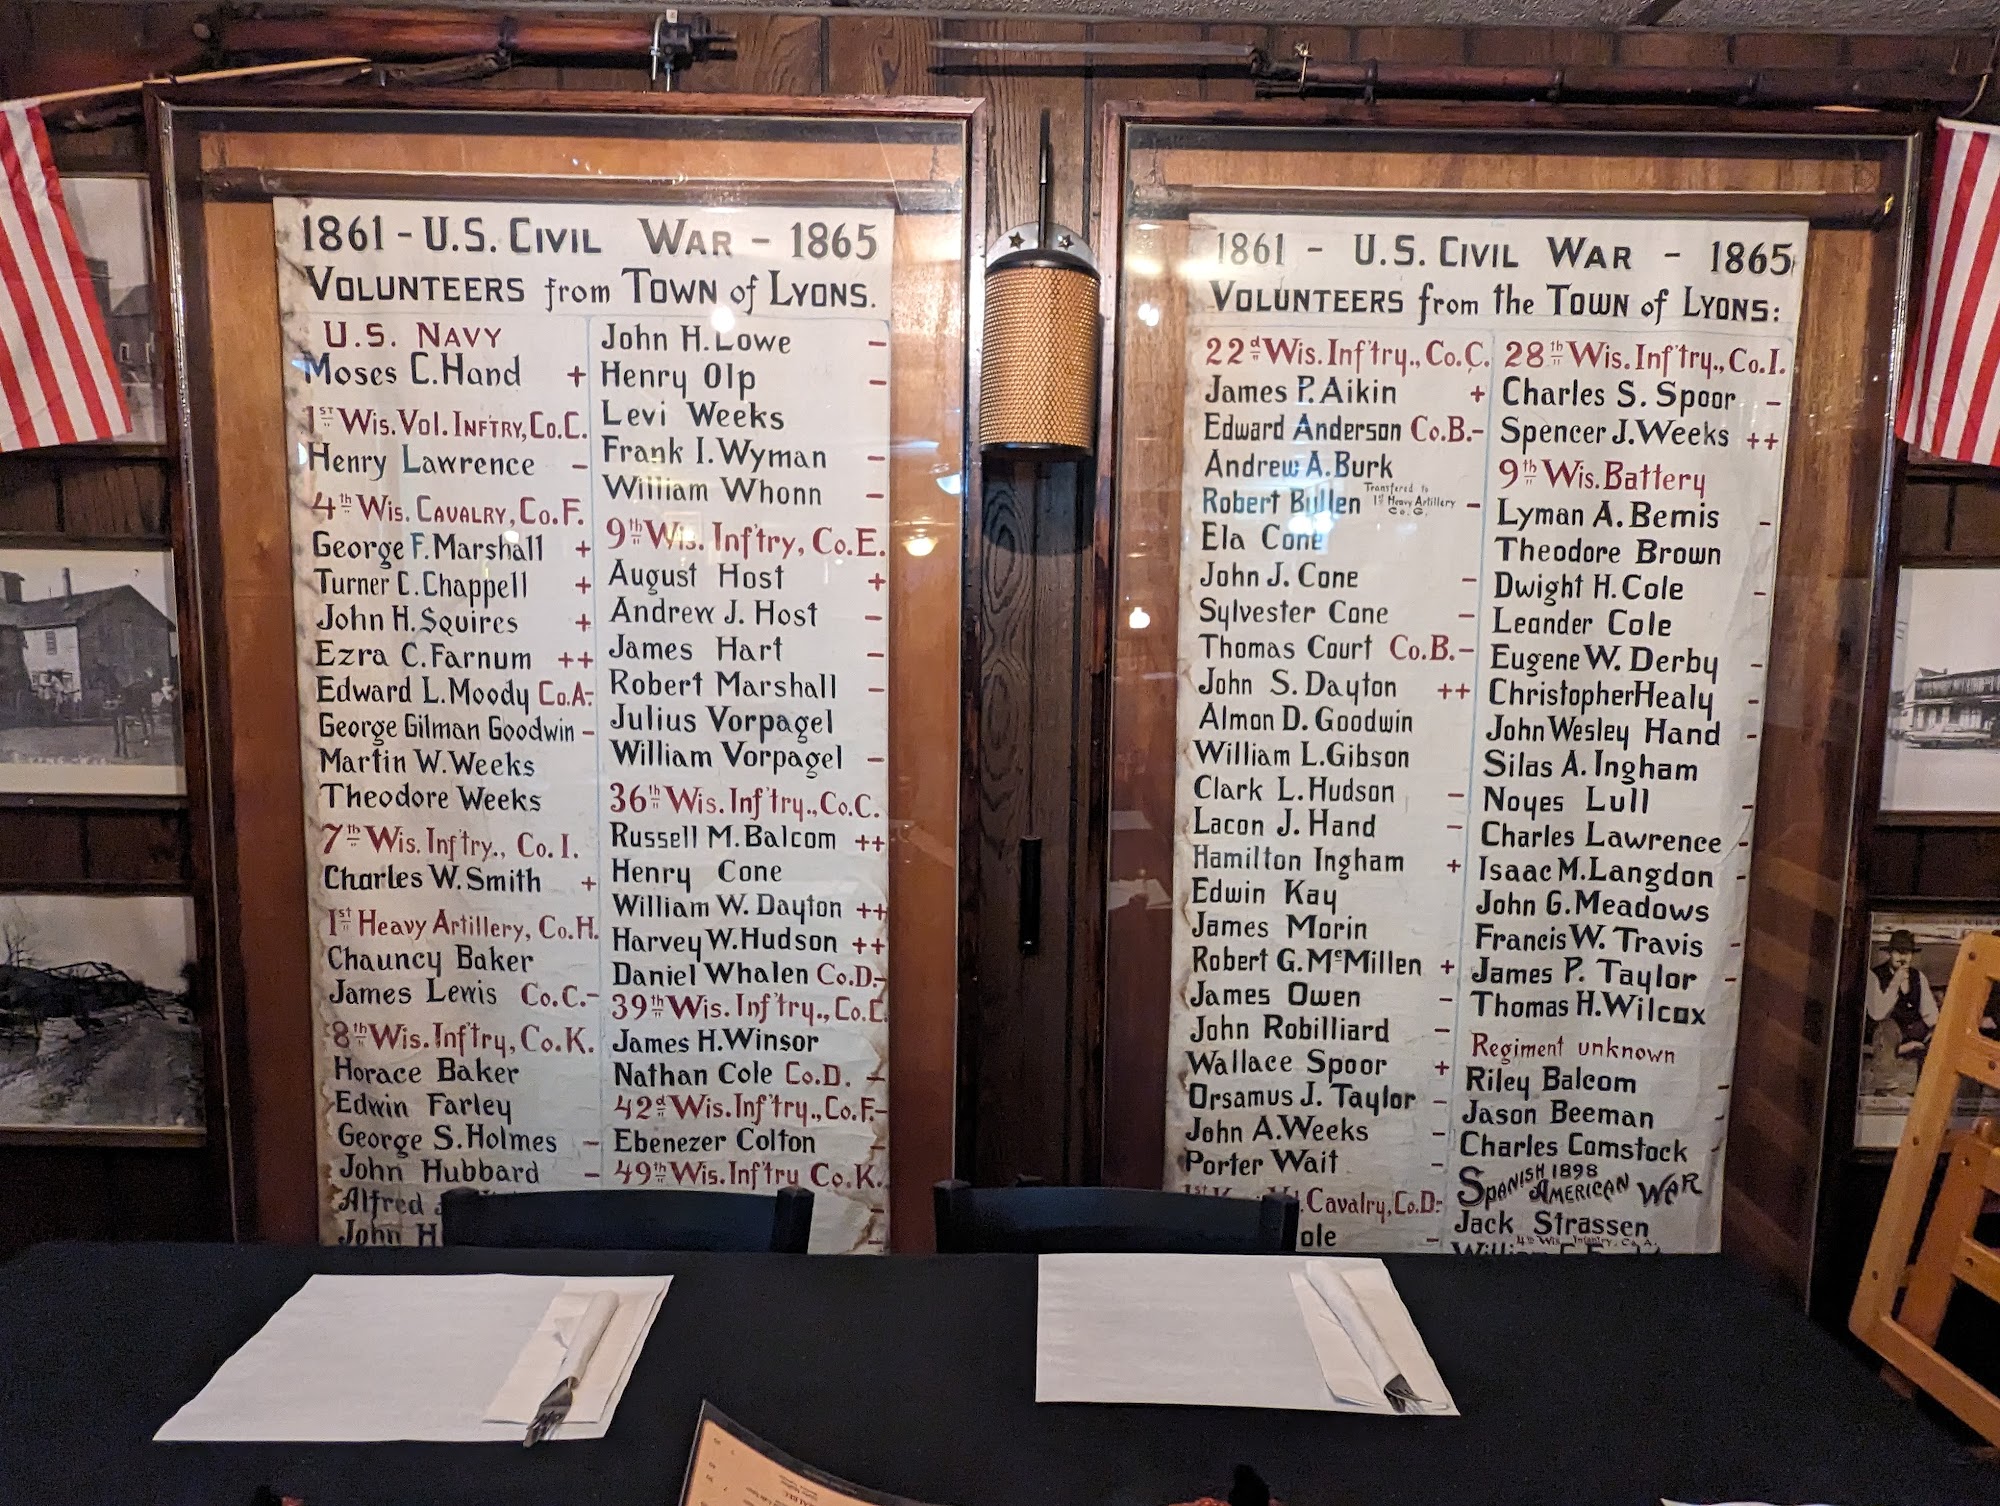 1861 - U.S. CIVIL WAR - 1865
VOLUNTEERS from TOWN of LYONS.
U.S. NAVY
Moses C. Hand +
1ST WIS. VOL. INFTRY, Co. C.
Henry Lawrence -
4th WIS. CAVALRY, Co. F.
George F. Marshall +
Turner C. Chappell +
John H. Squires +
Ezra C. Farnum ++
Edward L. Moody Co. A-
George Gilman Goodwin -
Martin W. Weeks
Theodore Weeks
7th Wis. Inf'try., Co. I.
Charles W. Smith +
1st Heavy Artillery, Co. H.
Chauncy Baker
James Lewis Co. C. -
8th Wis. Inf'try, Co. K.
Horace Baker
Edwin Farley
George S. Holmes -
John Hubbard -
Alfred
John H
John H. Lowe -
Henry Olp -
Levi Weeks
Frank I. Wyman -
William Whonn -
9th Wis. Inf'try, Co. E.
August Host +
Andrew J. Host -
James Hart -
Robert Marshall -
Julius Vorpagel
William Vorpagel -
36th Wis. Inf'try., Co. C.
Russell M. Balcom ++
Henry Cone
William W. Dayton ++
Harvey W. Hudson ++
Daniel Whalen Co. D. -
39th Wis. Inf'try., Co. C.
James H. Winsor
Nathan Cole Co. D. -
42d Wis. Inf'try., Co. F. -
Ebenezer Colton -
49th Wis. Inf'try Co. K.
1861 - U.S. CIVIL WAR - 1865
VOLUNTEERS from the TOWN of LYONS:
22d Wis. Inf'try., Co. C.
James P. Aikin +
Edward Anderson Co. B. -
Andrew A. Burk
Robert Bullen Transfered to 1st Heavy Artillery Co. G. -
Ela Cone
John J. Cone -
Sylvester Cone -
Thomas Court Co. B. -
John S. Dayton ++
Almon D. Goodwin
William L. Gibson
Clark L. Hudson -
Lacon J. Hand -
Hamilton Ingham +
Edwin Kay
James Morin
Robert G. McMillen +
James Owen -
John Robilliard -
Wallace Spoor +
Orsamus J. Taylor -
John A. Weeks -
Porter Wait -
Cavalry, Co. D. -
ole -
28th Wis. Inf'try., Co. I.
Charles S. Spoor -
Spencer J. Weeks ++
9th Wis. Battery
Lyman A. Bemis -
Theodore Brown
Dwight H. Cole -
Leander Cole
Eugene W. Derby -
Christopher Healy -
John Wesley Hand -
Silas A. Ingham
Noyes Lull -
Charles Lawrence -
Isaac M. Langdon -
John G. Meadows
Francis W. Travis -
James P. Taylor -
Thomas H. Wilcox
Regiment unknown
Riley Balcom -
Jason Beeman -
Charles Comstock -
SPANISH 1898 AMERICAN WAR
Jack Strassen
4th Wis. Infantry, Co. A.